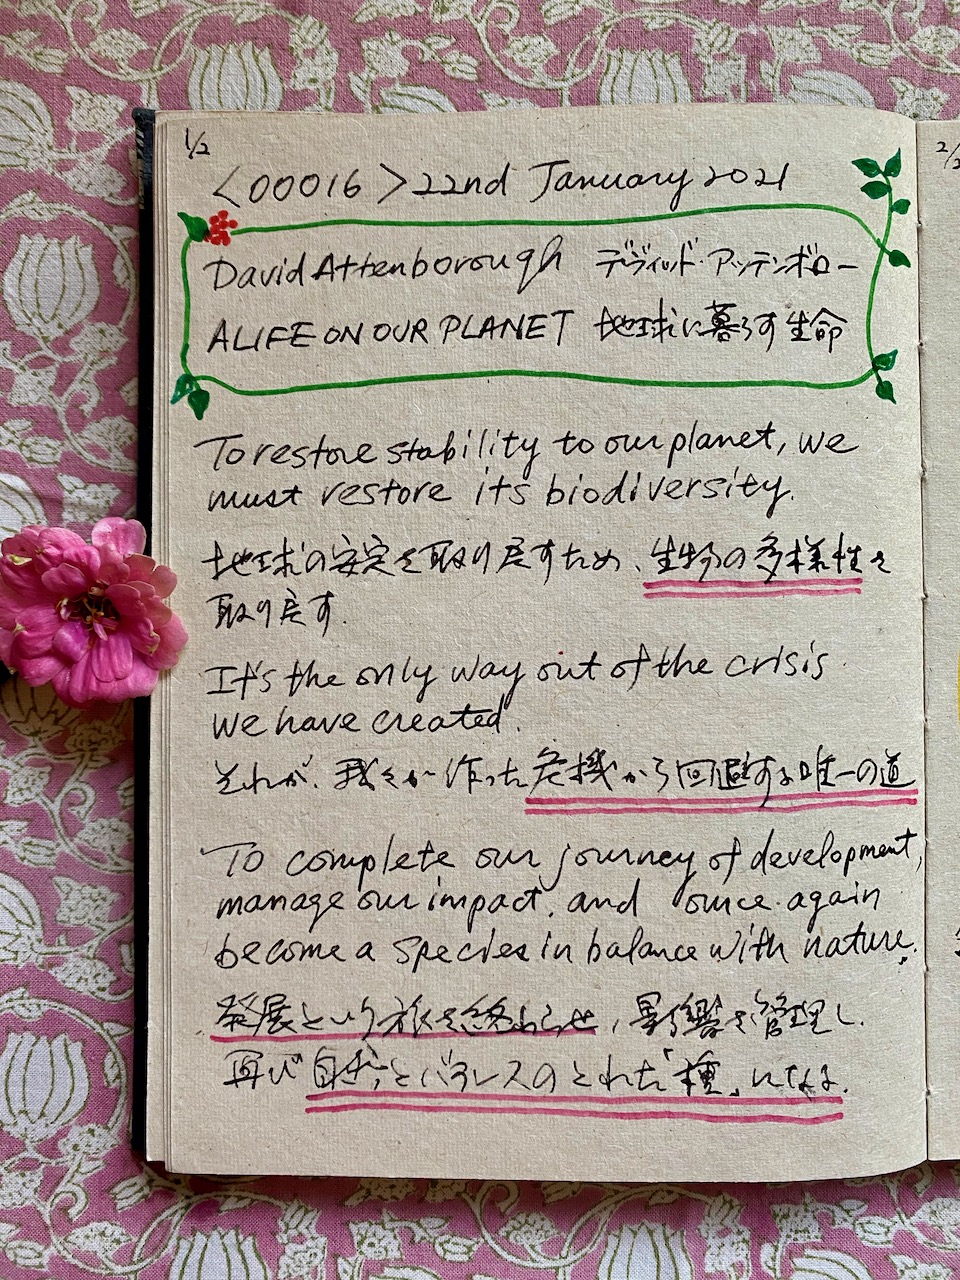 1/2
<00016> 22nd January 2021
David Attenborough デヴィッド・アッテンボロー
A LIFE ON OUR PLANET 地球に暮らす生命
To restore stability to our planet, we
must restore its biodiversity.
地球の安定を取り戻すため、生物の多様性を
取り戻す.
It's the only way out of the crisis
we have created.
それが、我々が作った危機から回避する唯一の道
To complete our journey of development,
manage our impact, and once again
become a species in balance with nature.
発展という旅を終わらせ、影響を管理し、
再び自然とバランスのとれた「種」になる.
2/2